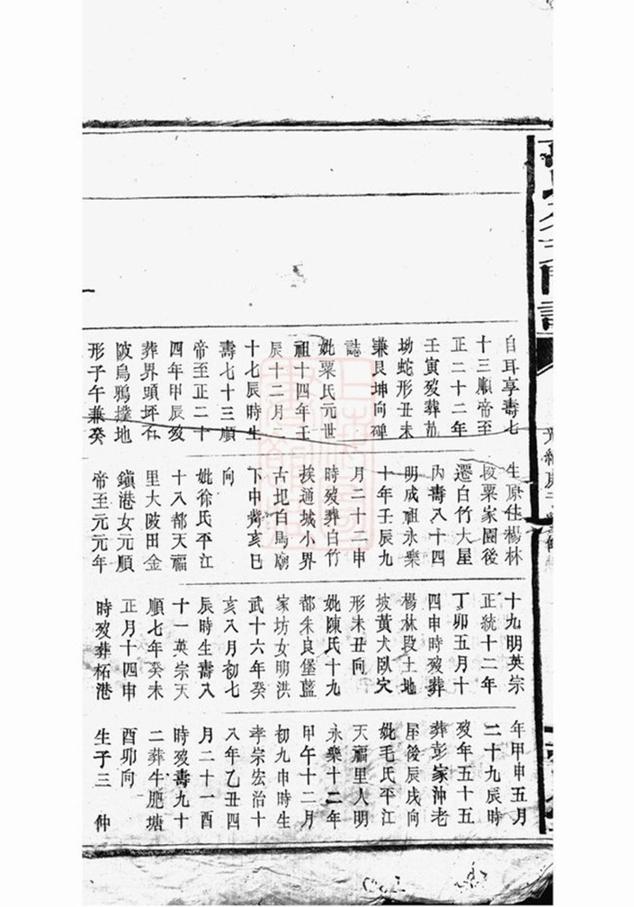 自耳享壽七
十三順帝至
正二十二年
壬寅歿葬
坳蛇形丑未
兼艮坤向碑
誌
妣粟氏元世
祖十四年壬
辰十二月二
十七辰時生
壽七十三順
帝至正二十
四年甲辰歿
葬界頭坪石
陂烏鴉撲地
形子午兼癸
生原住楊林
段粟家園後
遷白竹大屋
內壽八十四
明成祖永樂
十年壬辰九
月二十二申
時歿葬白竹
挨通城小界
古圯白馬廟
下中脊亥巳
向
妣徐氏平江
十八都天福
里大陂田金
鎮港女元順
帝至元元年
十九明英宗
正統十二年
丁卯五月十
四申時歿葬
楊林段土地
坡黃犬臥穴
形未丑向
妣陳氏十九
都朱良堡藍
家坊女明洪
武十六年癸
亥八月初七
辰時生壽八
十一英宗天
順七年癸未
正月十四申
時歿葬柘港
年甲申五月
二十九辰時
歿年五十五
葬彭家沖老
屋後辰戌向
妣毛氏平江
天福里人明
永樂十二年
甲午十二月
初九申時生
孝宗宏治十
八年乙丑四
月二十一酉
時歿壽九十
二葬牛肥塘
酉卯向
生子三 仲